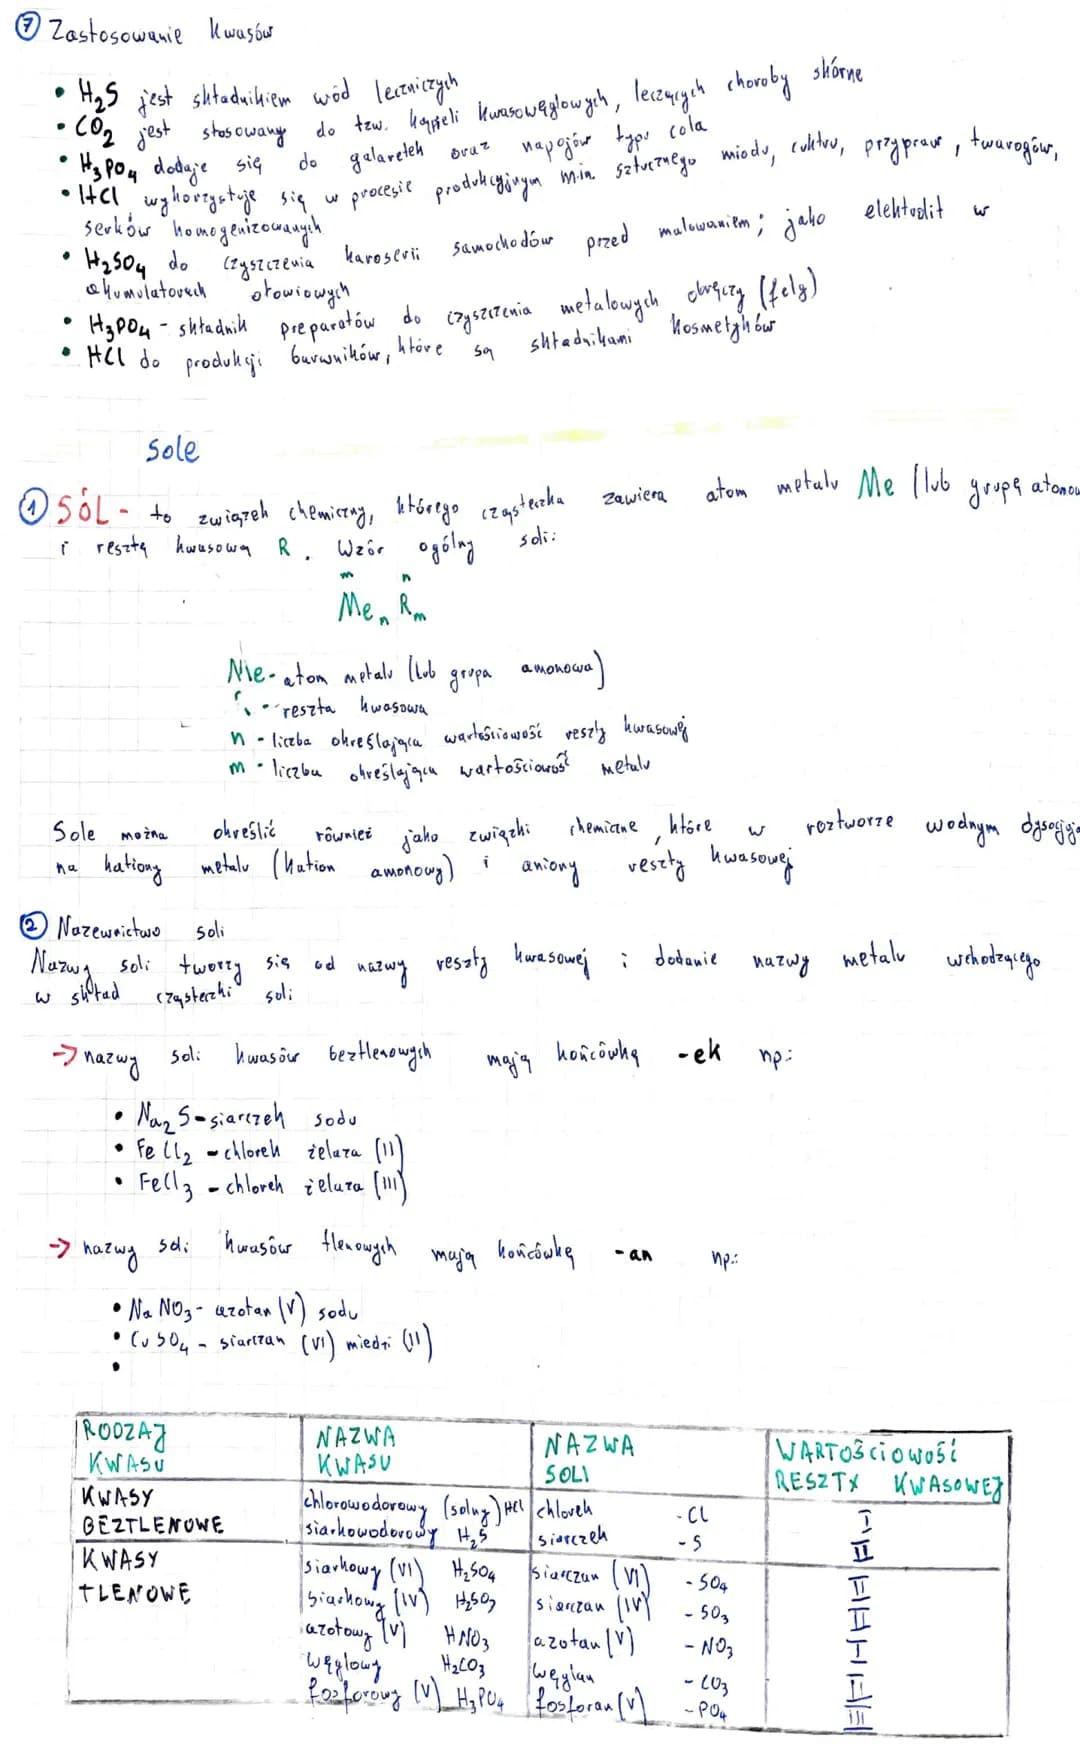 ⑦ Zastosowanie kwasów
• H₂S jest składnikiem wód leczniczych
• CO₂ jest stosowany do tzw. kąpieli kwasowęglowych, leczących choroby skórne
• H₃PO₄ dodaje się do galaretek oraz napojów typu cola
• HCl wykorzystuje się w procesie produkcyjnym m.in. sztucznego miodu, cukru, przypraw, twarogów,
serków homogenizowanych
• H₂SO₄ do czyszczenia karoserii samochodów przed malowaniem; jako elektrolit w
akumulatorach ołowiowych
• H₃PO₄ - składnik preparatów do czyszczenia metalowych obręczy (felg)
• HCl do produkcji barwników, które są składnikami kosmetyków
Sole
① SÓL - to związek chemiczny, którego cząsteczka zawiera atom metalu Me (lub grupę atonow
i resztę kwasową R. Wzór ogólny soli:
m n
Meₙ Rₘ
Me - atom metalu (lub grupa amonowa)
- reszta kwasowa
n - liczba określająca wartościowość reszty kwasowej
m - liczba określająca wartościowość metalu
Sole można określić również jako związki chemiczne, które w roztworze wodnym dysocjują
na kationy metalu (kation amonowy) i aniony reszty kwasowej
② Nazewnictwo soli
Nazwy soli tworzy się od nazwy reszty kwasowej i dodanie nazwy metalu wchodzącego
w skład cząsteczki soli
→ nazwy soli kwasów beztlenowych mają końcówkę -ek np:
• Na₂S - siarczek sodu
• FeCl₂ - chlorek żelaza (II)
• FeCl₃ - chlorek żelaza (III)
→ nazwy soli kwasów tlenowych mają końcówkę -an np.:
• NaNO₃ - azotan (V) sodu
• CuSO₄ - siarczan (VI) miedzi (II)
•
RODZAJ KWASU NAZWA KWASU NAZWA SOLI WARTOŚCIOWOŚĆ RESZTY KWASOWEJ
KWASY BEZTLENOWE chlorowodorowy (solny) HCl chlorek - Cl I
siarkowodorowy H₂S siarczek - S II
KWASY TLENOWE siarkowy (VI) H₂SO₄ siarczan (VI) - SO₄ II
siarkowy (IV) H₂SO₃ siarczan (IV) - SO₃ II
azotowy (V) HNO₃ azotan (V) - NO₃ I
węglowy H₂CO₃ węglan - CO₃ II
fosforowy (V) H₃PO₄ fosforan (V) - PO₄ III